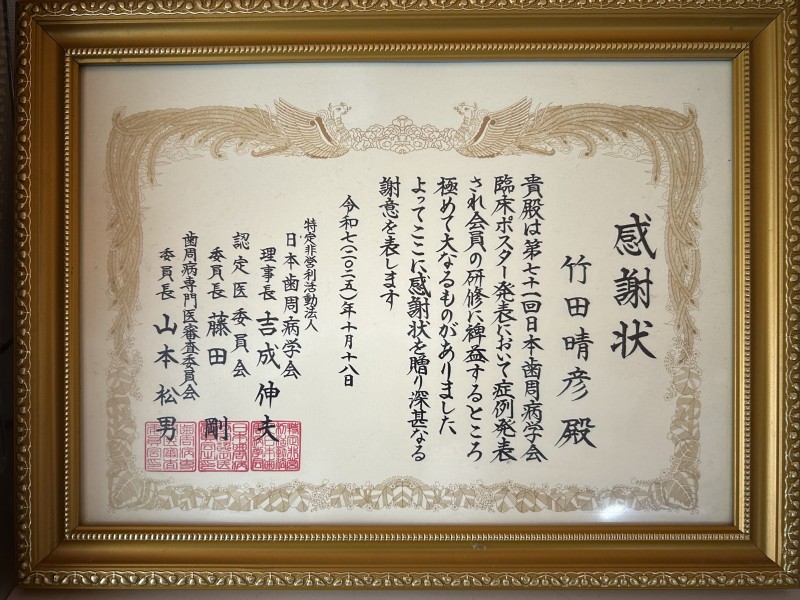 感謝状
竹田晴彦 殿
貴殿は第七十一回日本歯周病学会
臨床ポスター発表において症例発表
され会員の研修に裨益するところ
極めて大なるものがありました
よってここに感謝状を贈り深甚なる
謝意を表します
令和七(二〇二五)年十月十八日
特定非営利活動法人
日本歯周病学会
理事長 吉成伸夫
認定医委員会
委員長 藤田 剛
歯周病専門医審査委員会
委員長 山本松男